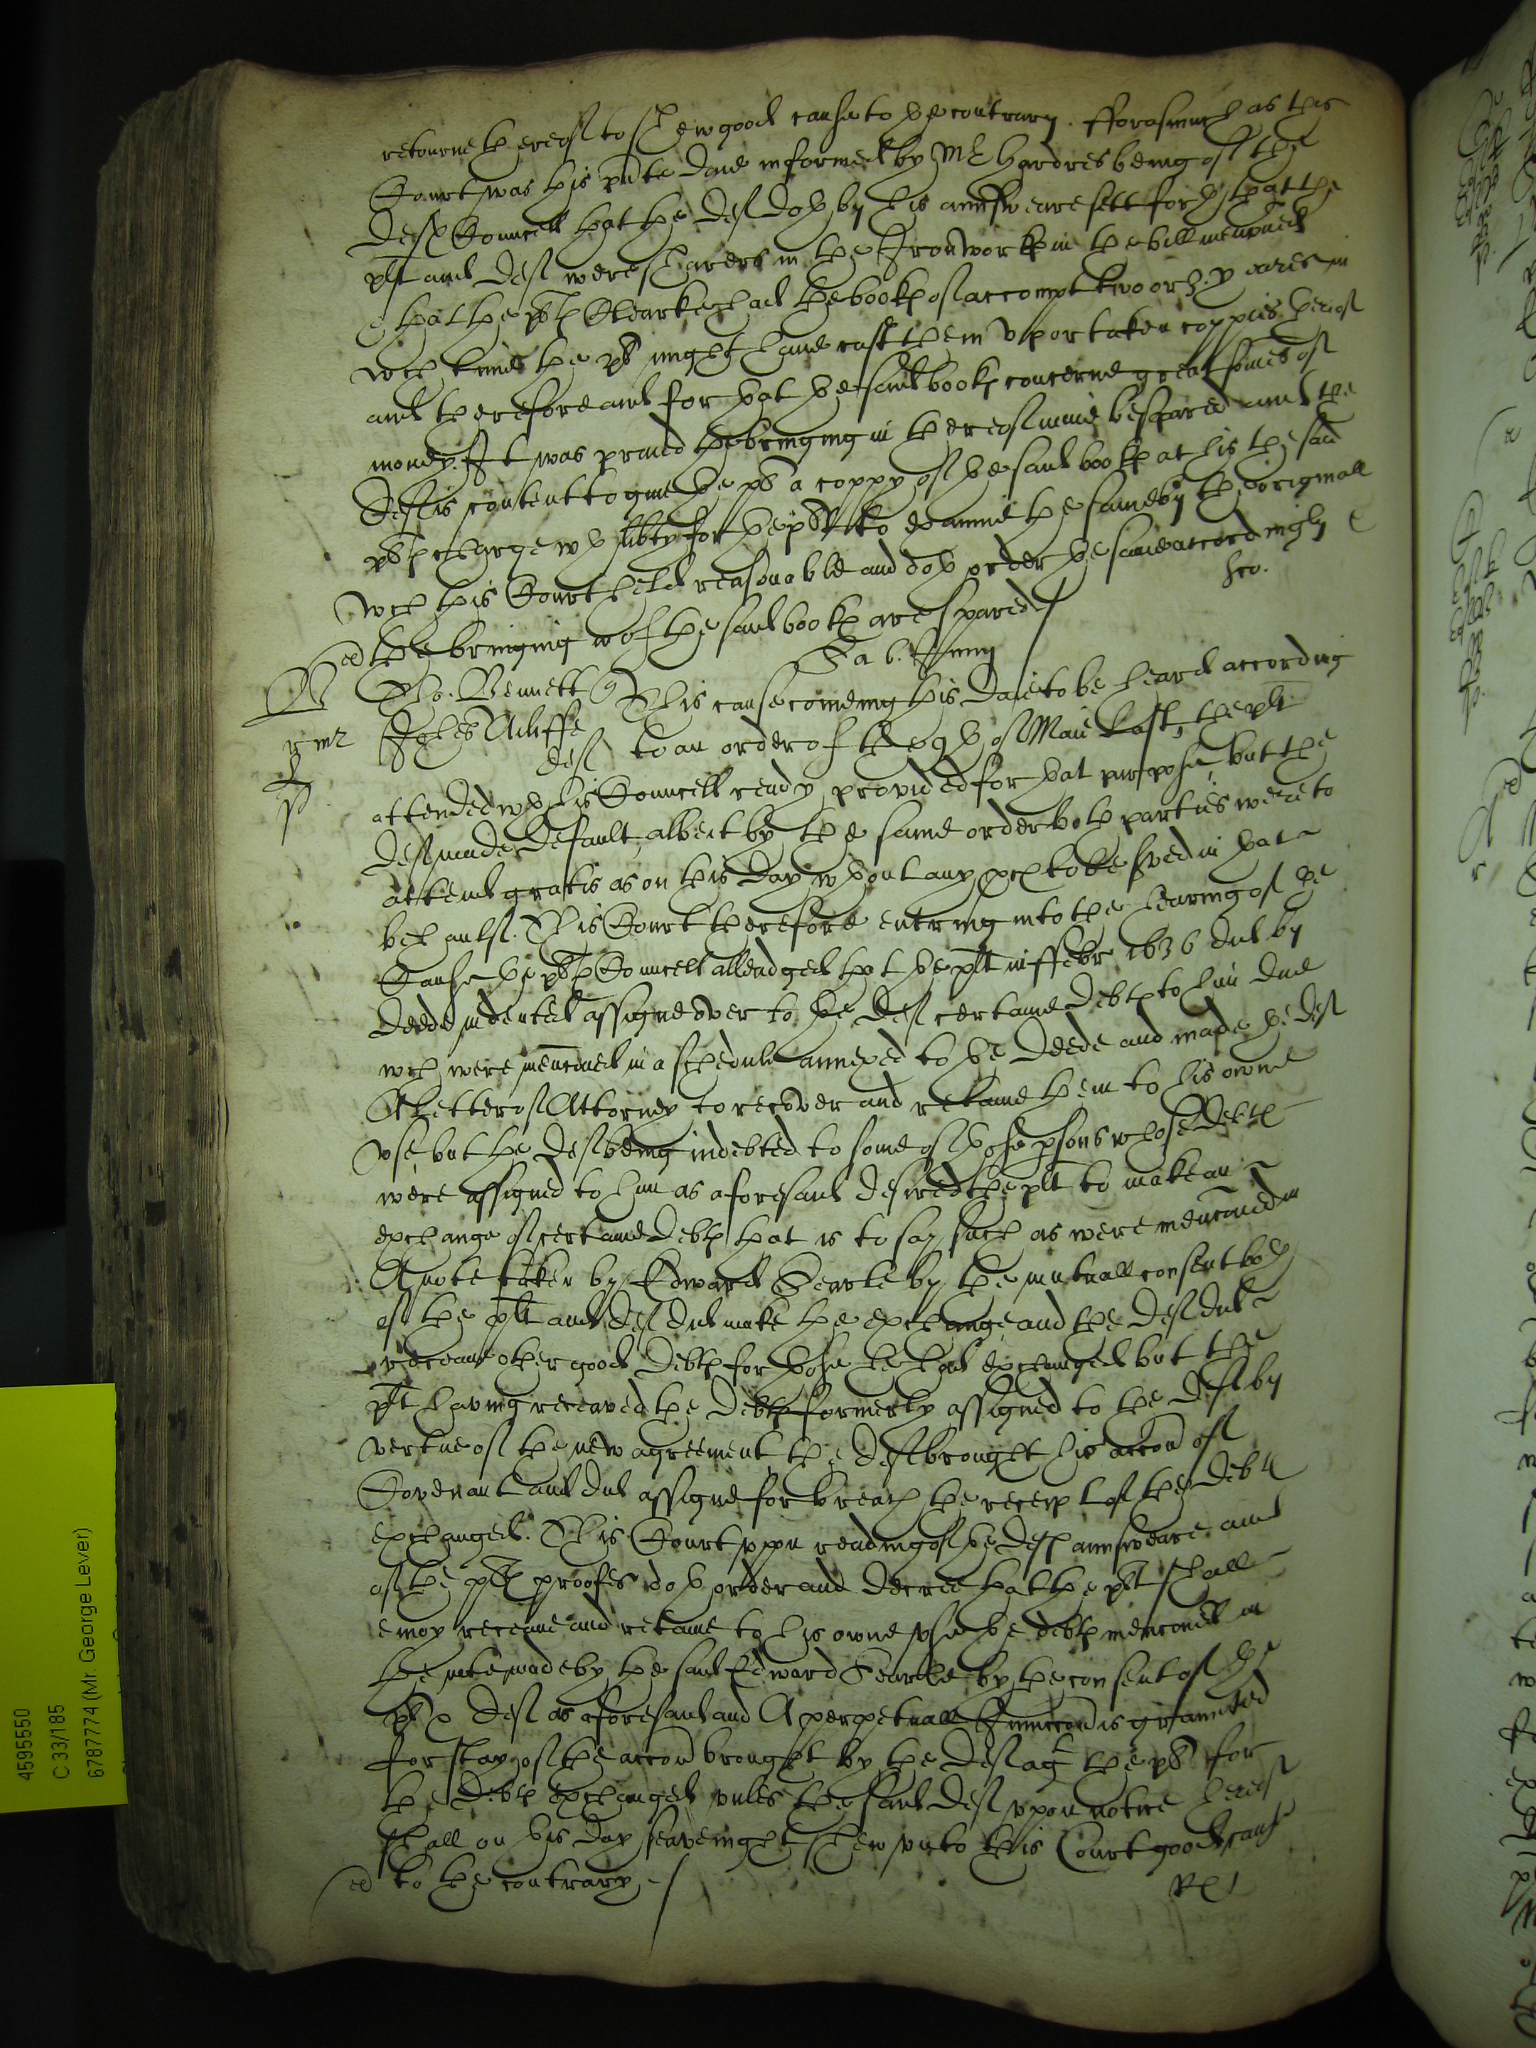 retourne thereof to shew good cause to the contrary. fforasmuch as this
Court was this pnte daie informed by Mr Hardres being of the
defts Councell that the deft doth by his answeare sett forth that the
plt and deft were sharers in the Ironworke in the bill menconed
that the plts Clarke had the books of accompt two or 3 yeares in
wch time the plt might have cast them vp or taken coppies thereof
and therefore and for that the said books concerne great somes of
money. It was praied the bringing in thereof maie be spared and the
deft is content to give the plt a coppy of the said books at his the said
plts charge wth libty for the plt to examine the same by the originall
wch this Court held reasonable and doth order the same accordingly
the bringing in of the said books are spared /
Sab. Junij
Tho. Bennett This cause comeing this daie to be heard according
Ayliffe deft to an order of the 9th of Maie last, the plt
attended wth his Councell ready provided for that purpose, but the
deft made default, albeit by the same order both parties were to
attend gratis as on this day wthout any pces to be served in that
behaulf. This Court therefore entring into the hearing of the
Cause the plts Councell alleadged that the plt in ffebr 1636 did by
deede indented assigne over to the deft certaine debts to him due
wch were menconed in a schedule annexed to the deede and made the deft
A Letter of Attorney to recover and retaine them to his owne
vse, but the deft being indebted to some of those psons whose debts
were assigned to him as aforesaid desired the plt to make an
exchange of certaine debts that is to say such as were menconed in
A note taken by Edward Searle by the mutuall consent both
of the plt and deft did make the exchange and the deft did
receave other good debts for those he had exchanged but the
plt having receaved the debts formerly assigned to the deft by
vertue of the new agreement the deft brought his accon of
Covenant and did assigne for breach the receipt of the debts
exchanged. This Court vppon reading of the defts answeare and
of the plts proofes doth order and decree that the plt shall
enioy receave and retaine to his owne vse the debts menconed in
the note made by the said Edward Searle by the consent of the
plt & deft as aforesaid and A perpetuall Iniunccon is graunted
for stay of the accon brought by the deft agt the plt for
the debts exchanged vnles the said deft vpon notice hereof
shall on this day seavenight shew vnto this Court good cause
to the contrary /
4595550
C 33/185
6787774 (Mr. George Lever)